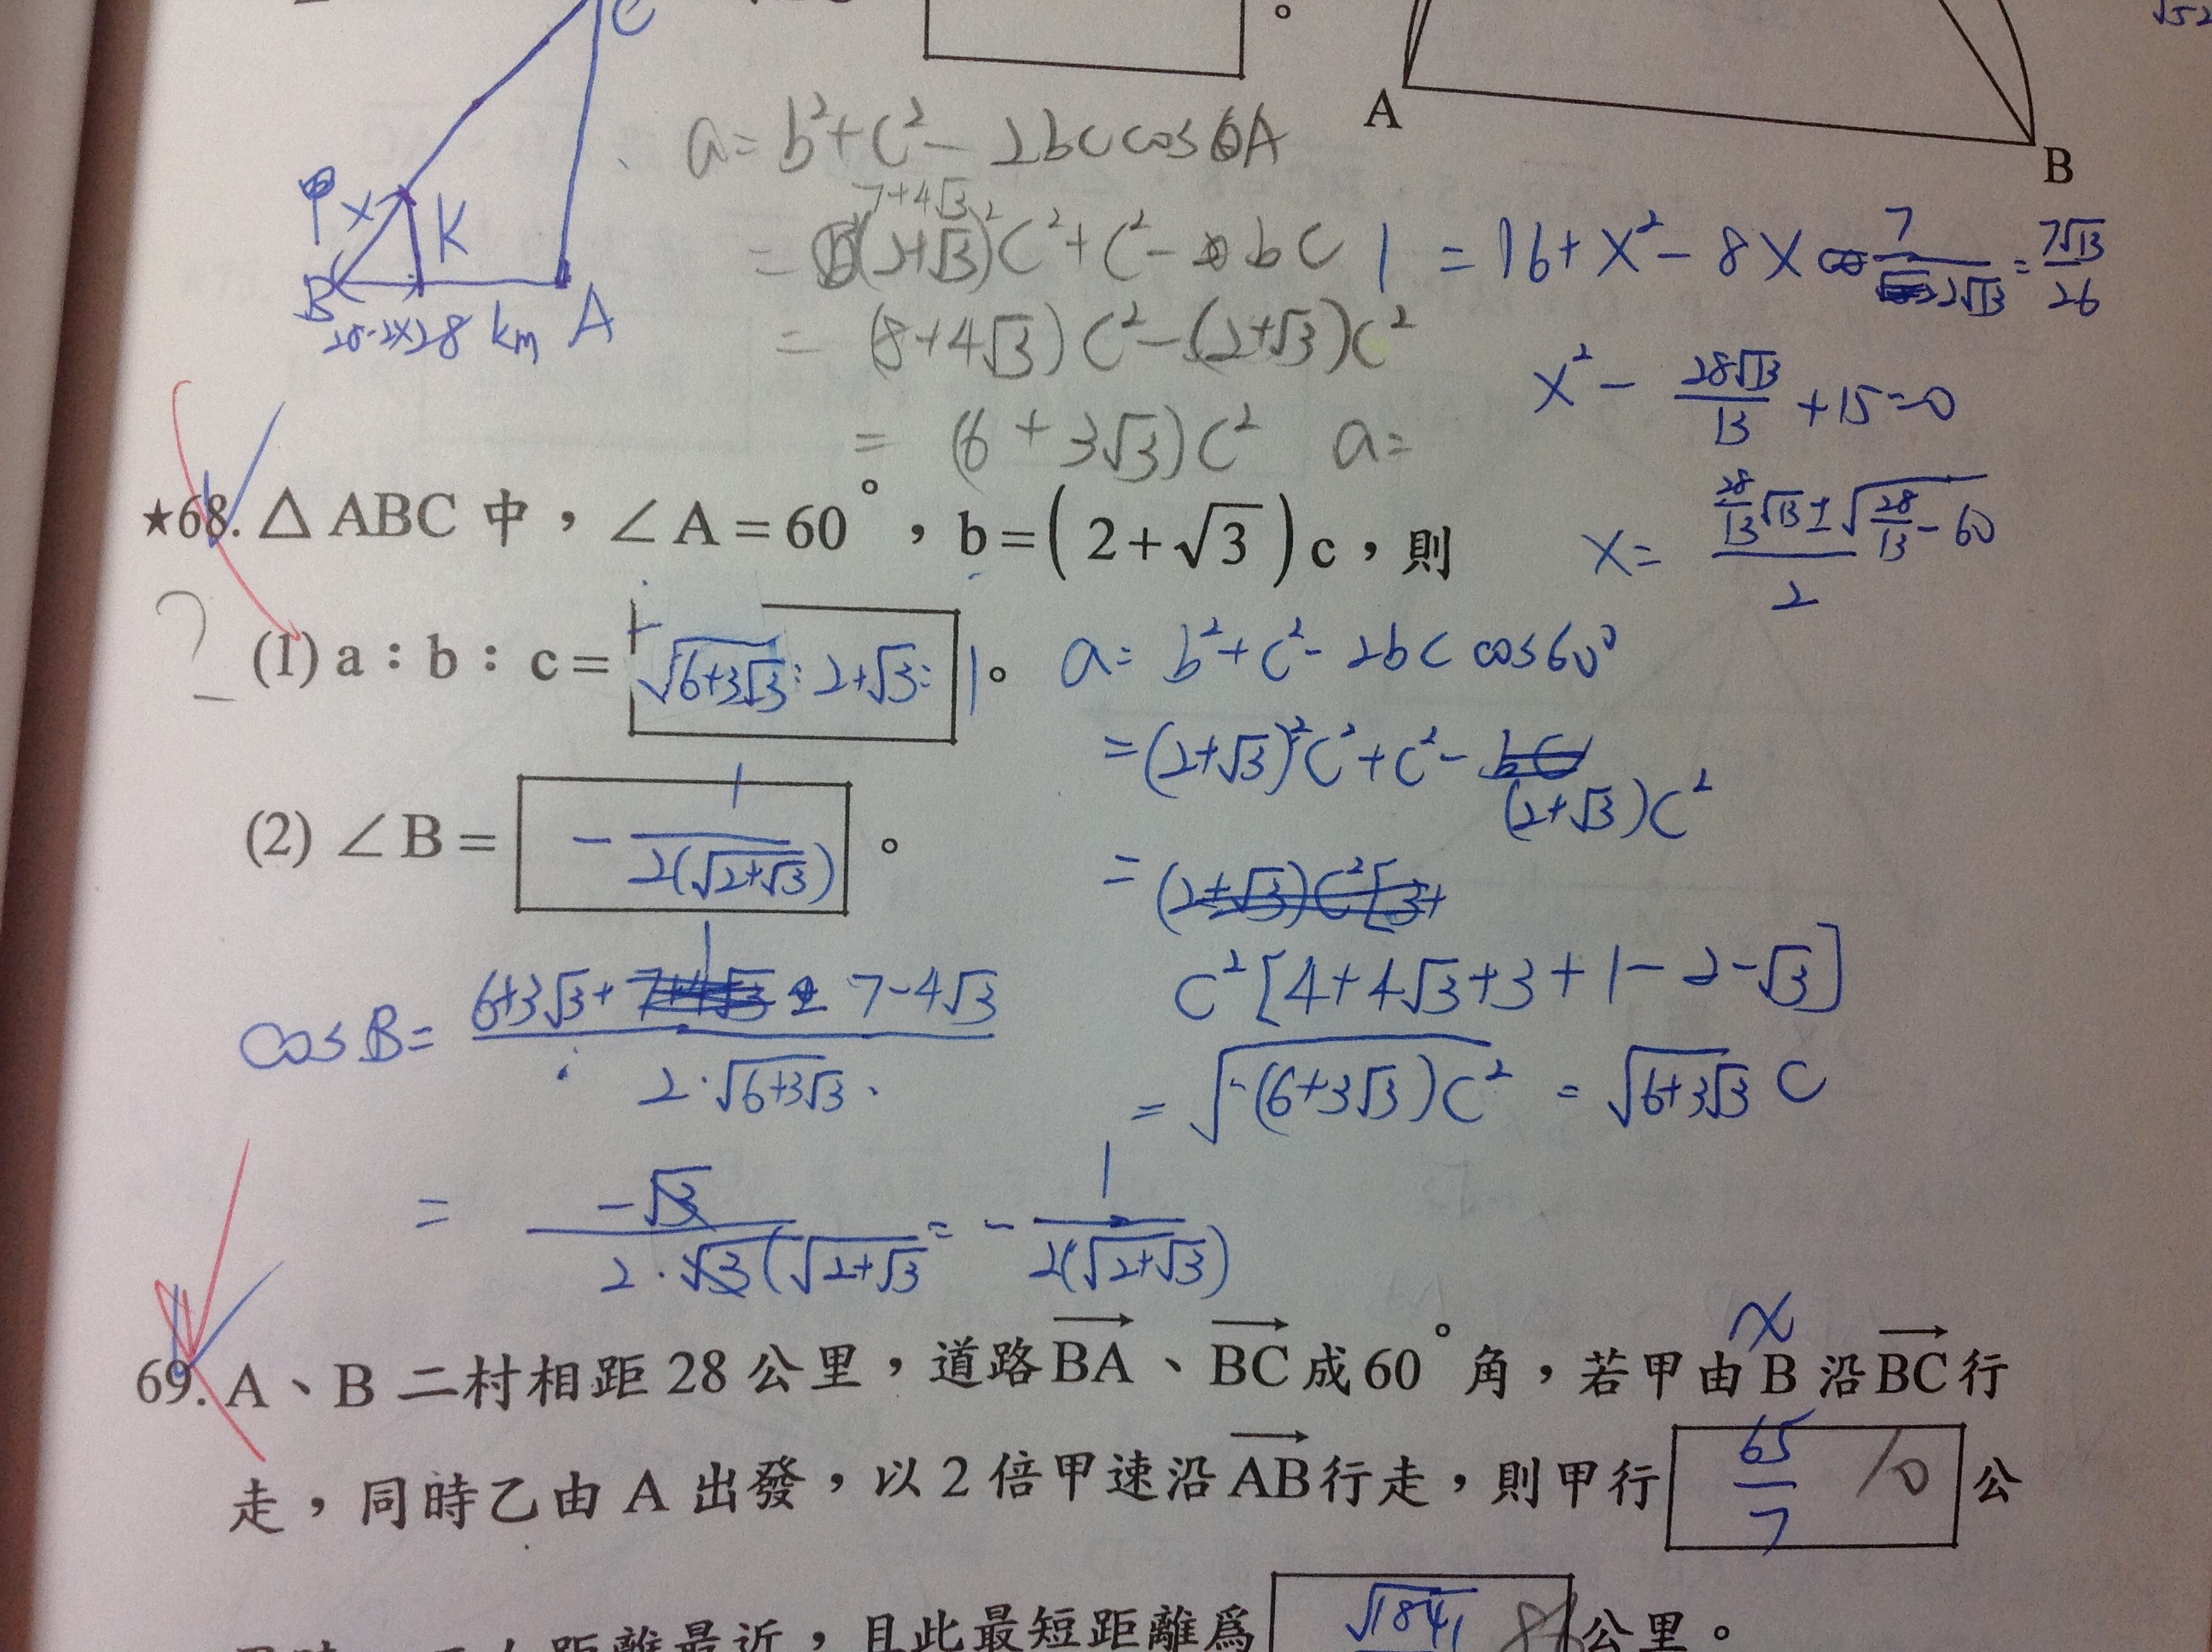 C
A
B
√52
a= b²+c²- 2bc cosA
7+4√3
= (2+√3)²c²+c²- bc
= (8+4√3)c²-(2+√3)c²
= (6+3√3)c² a=
甲 x K
B A
28-2x 28 km
1 = 16+x²-8x 7/2√13 = 7√13/26
x²- 28√13/13 +15=0
x= (28/13 √13 ± √(28/13 - 60))/2
★68. △ABC 中,∠A=60°,b=(2+√3)c,則
? (1) a:b:c= √(6+3√3) : 2+√3 : 1 。
(2) ∠B= - 1/(2(√(2+√3))) 。
a= b²+c²- 2bc cos60°
=(2+√3)²c²+c²- (2+√3)c²
=
c²[4+4√3+3+1-2-√3]
= √((6+3√3)c²) = √(6+3√3) c
cosB= (6+3√3+1-7-4√3)/(2·√(6+3√3)·
= -√3/(2·√3(√(2+√3)) = - 1/(2(√(2+√3)))
69. A、B 二村相距 28 公里,道路BA、BC成60°角,若甲由 B 沿BC行
x
走,同時乙由 A 出發,以 2 倍甲速沿AB行走,則甲行 65/7 10 公
距離最近,且此最短距離為 √1841 公里。